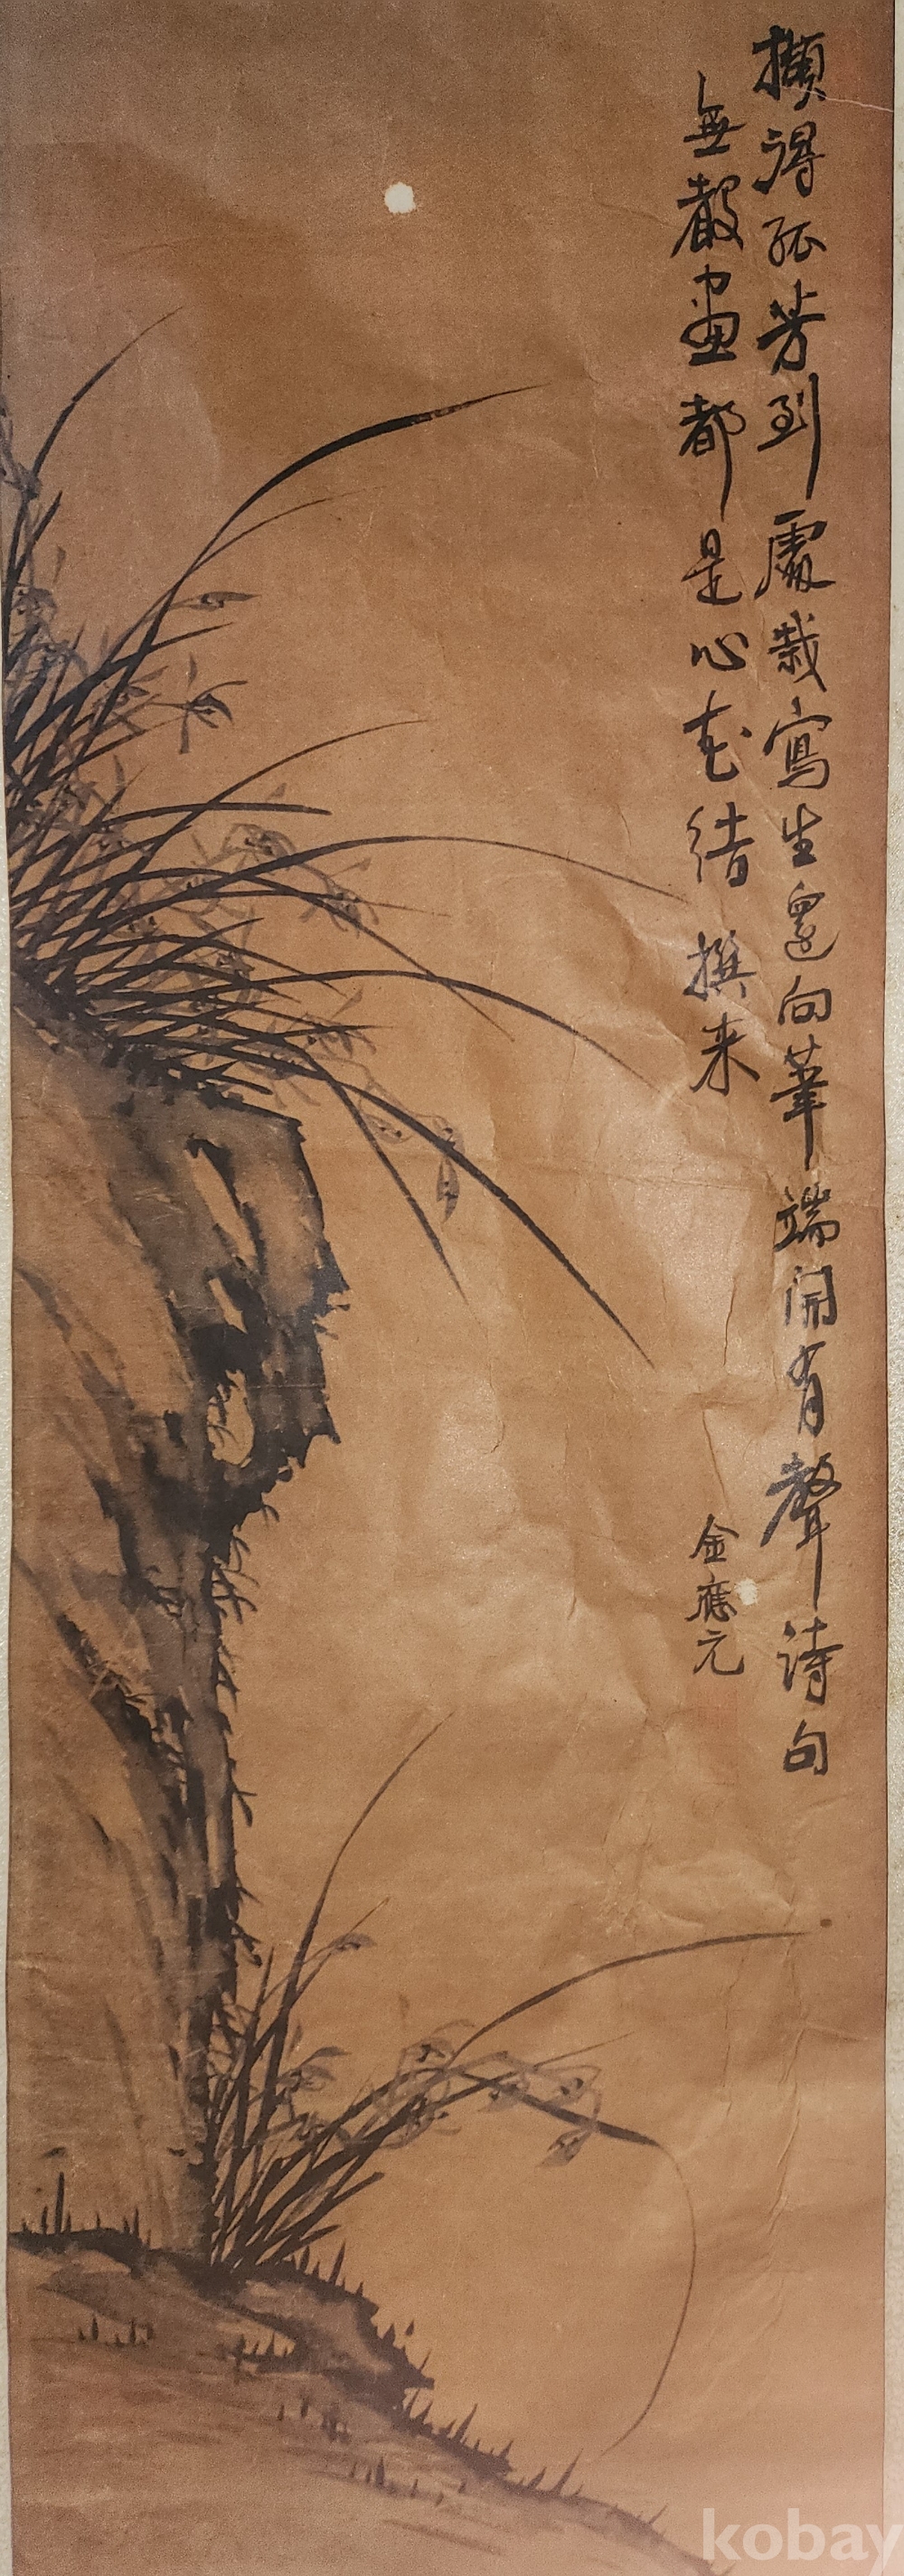 擷得孤芳到處栽寫生還向筆端開有聲詩句
無聲畫都是心花結撰來
金應元
kobay